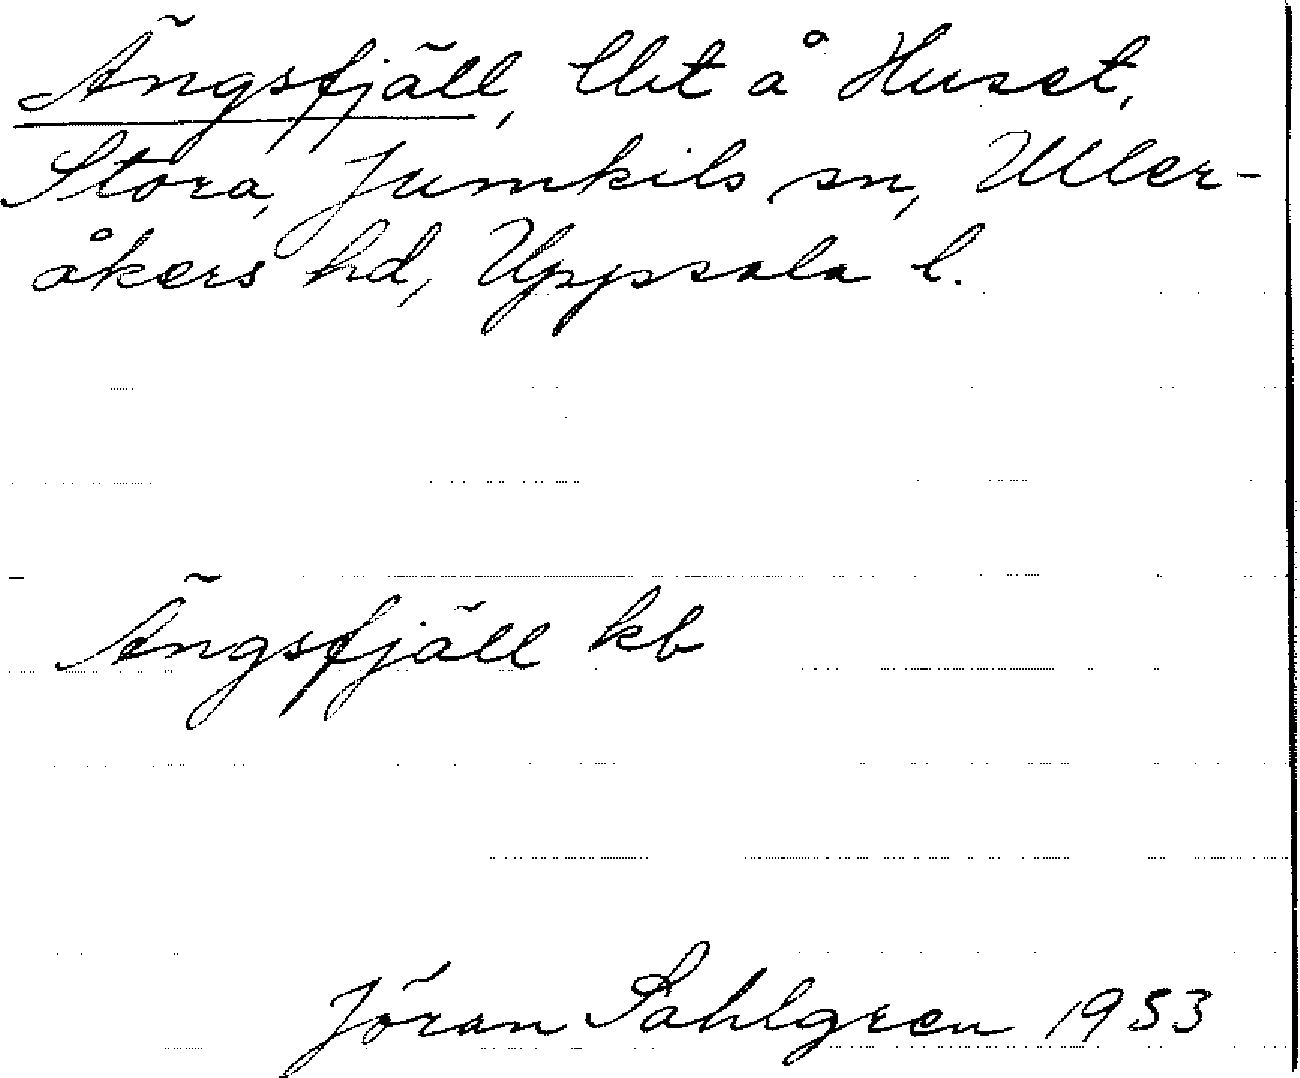 Ängsfjäll, lht å Huset,
Stora, Jumkils sn, Uller-
åkers hd, Uppsala l.
Ängsfjäll kb
Jöran Sahlgren 1953